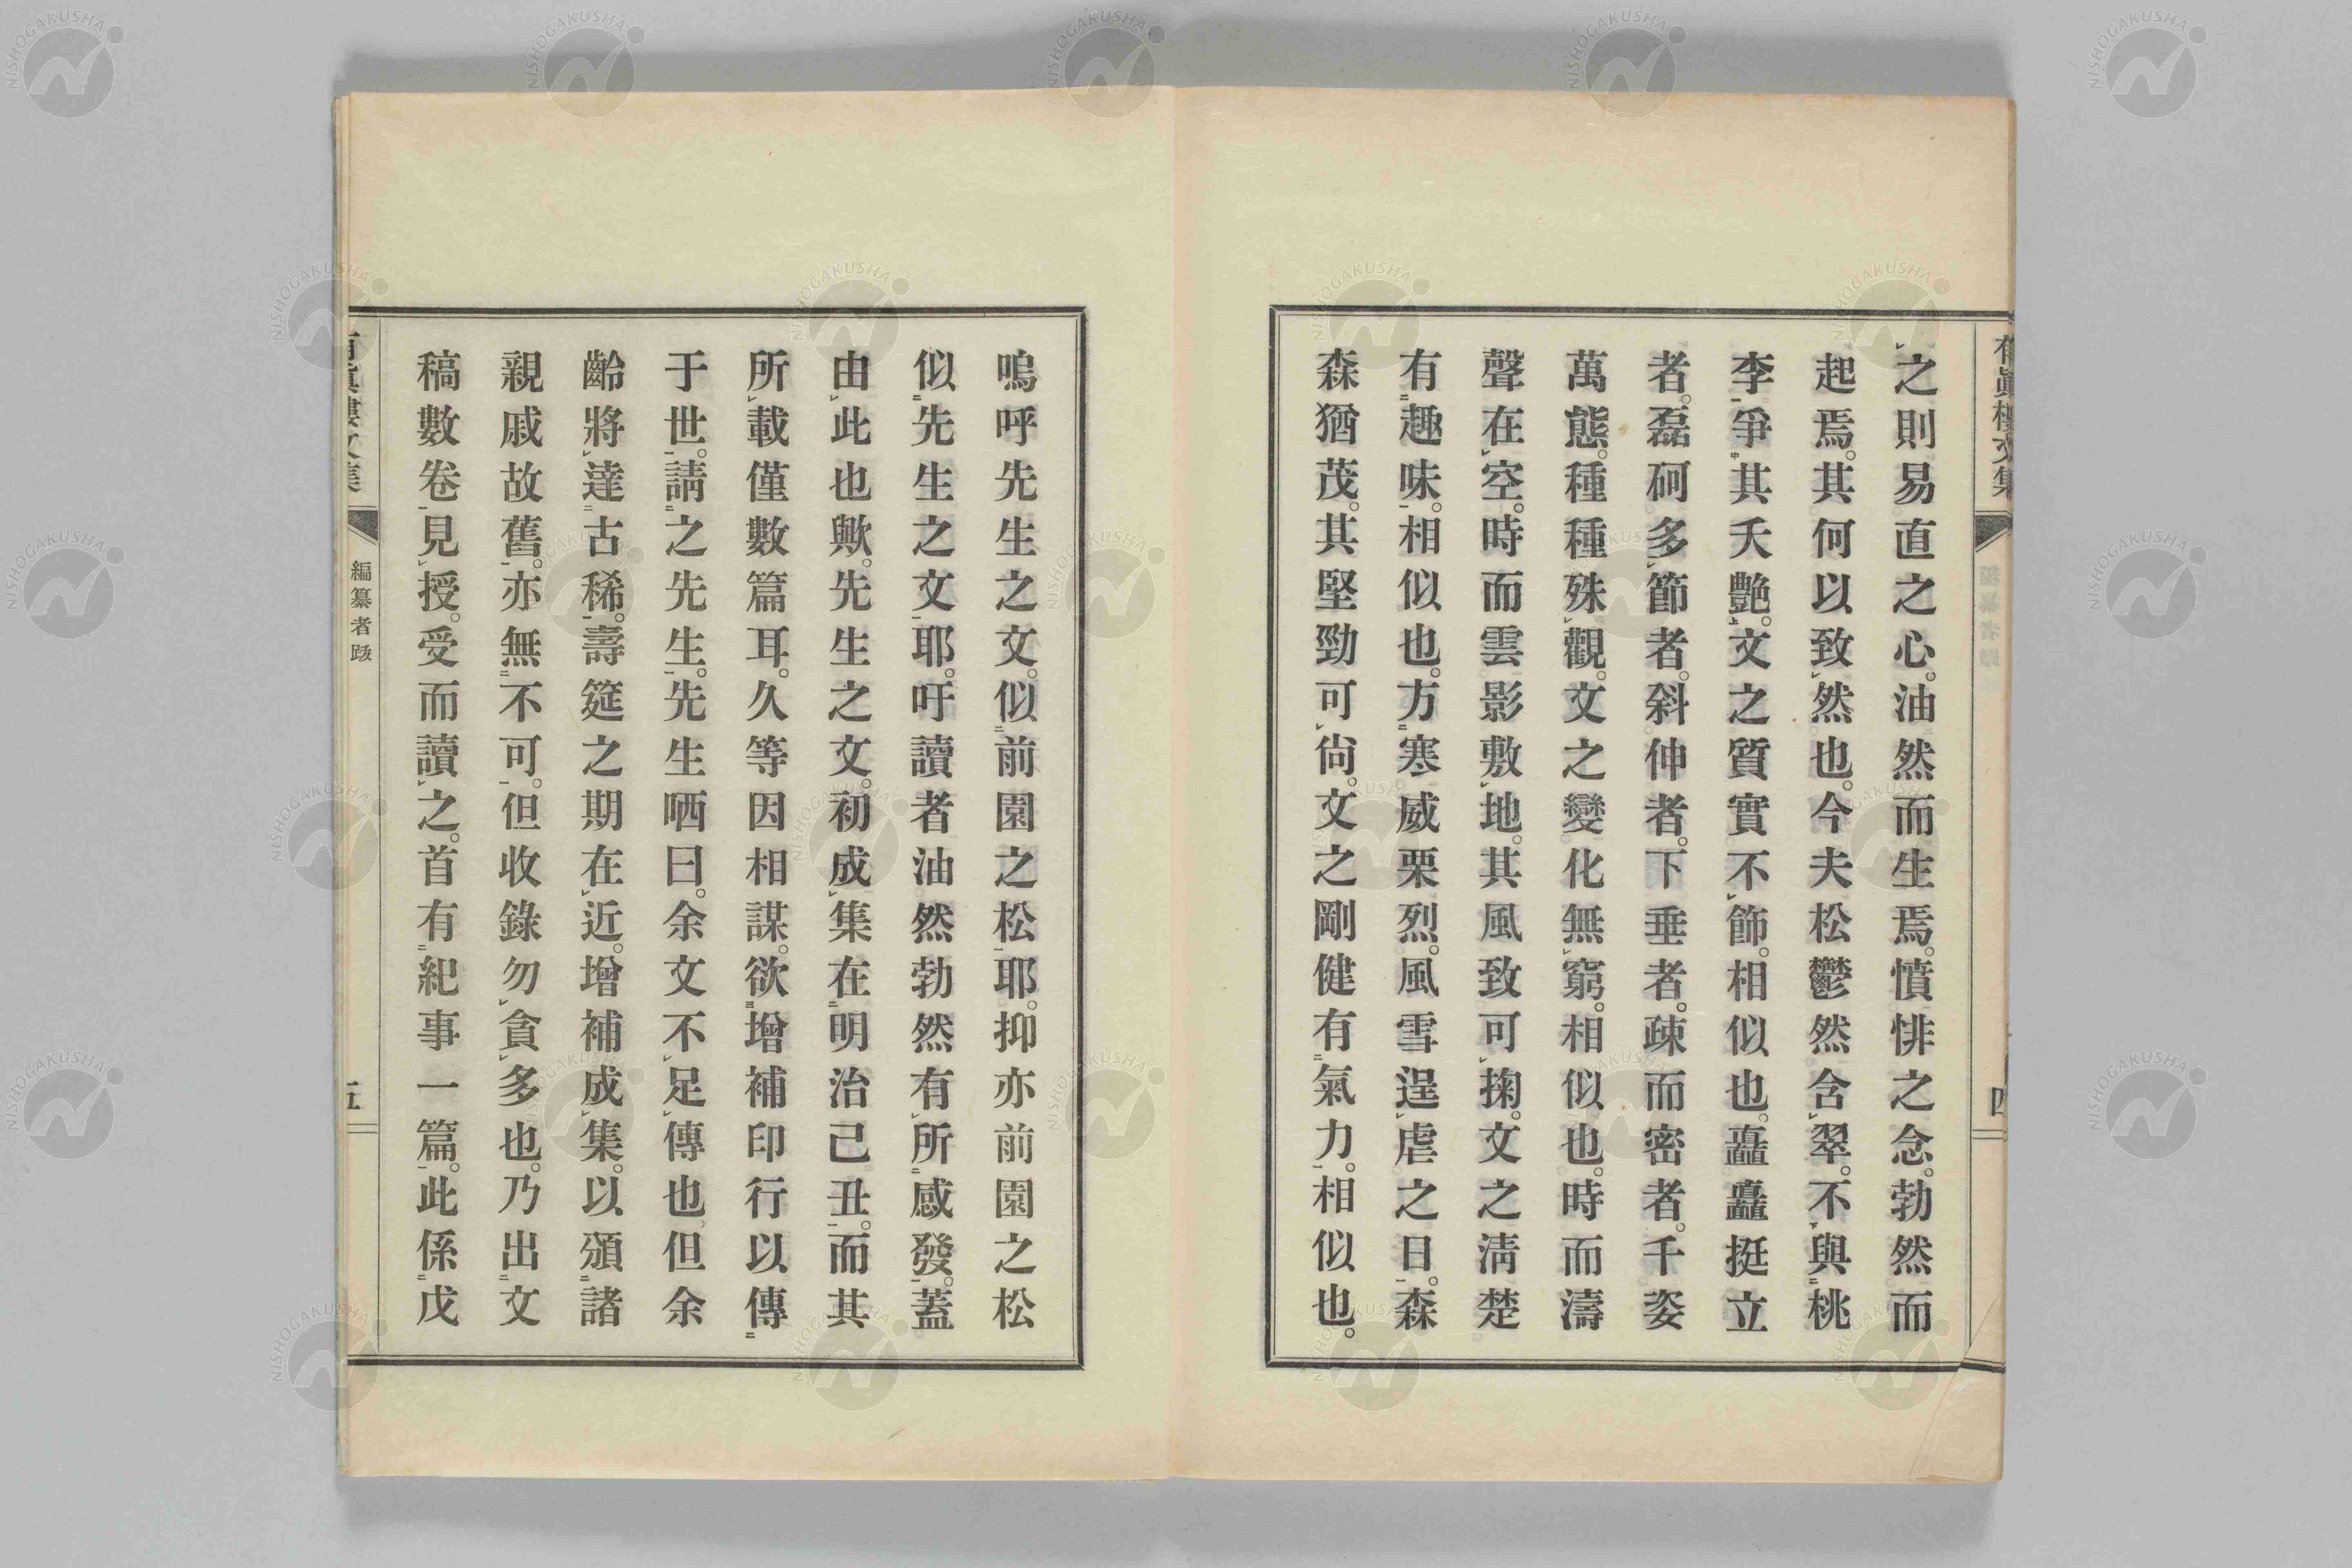 之則易直之心。油然而生焉。憤悱之念。勃然而
起焉。其何以致然也。今夫松鬱然含翠。不與桃
李爭其夭艷。文之質實不飾。相似也。矗矗挺立
者。磊砢多節者。斜伸者。下垂者。疎而密者。千姿
萬態。種種殊觀。文之變化無窮。相似也。時而濤
聲在空。時而雲影敷地。其風致可掬。文之淸楚
有趣味。相似也。方寒威栗烈。風雪逞虐之日。森
森猶茂。其堅勁可尙。文之剛健有氣力。相似也。
嗚呼先生之文。似前園之松耶。抑亦前園之松
似先生之文耶。吁讀者油然勃然有所感發。蓋
由此也歟。先生之文。初成集在明治己丑。而其
所載僅數篇耳。久等因相謀。欲增補印行以傳
于世。請之先生。先生哂曰。余文不足傳也、但余
齡將達古稀。壽筵之期在近。增補成集。以頒諸
親戚故舊。亦無不可。但收錄勿貪多也。乃出文
稿數卷見授。受而讀之。首有紀事一篇。此係戊
編纂者跋
五
有眞樓文集
四
NISHOGAKUSHA